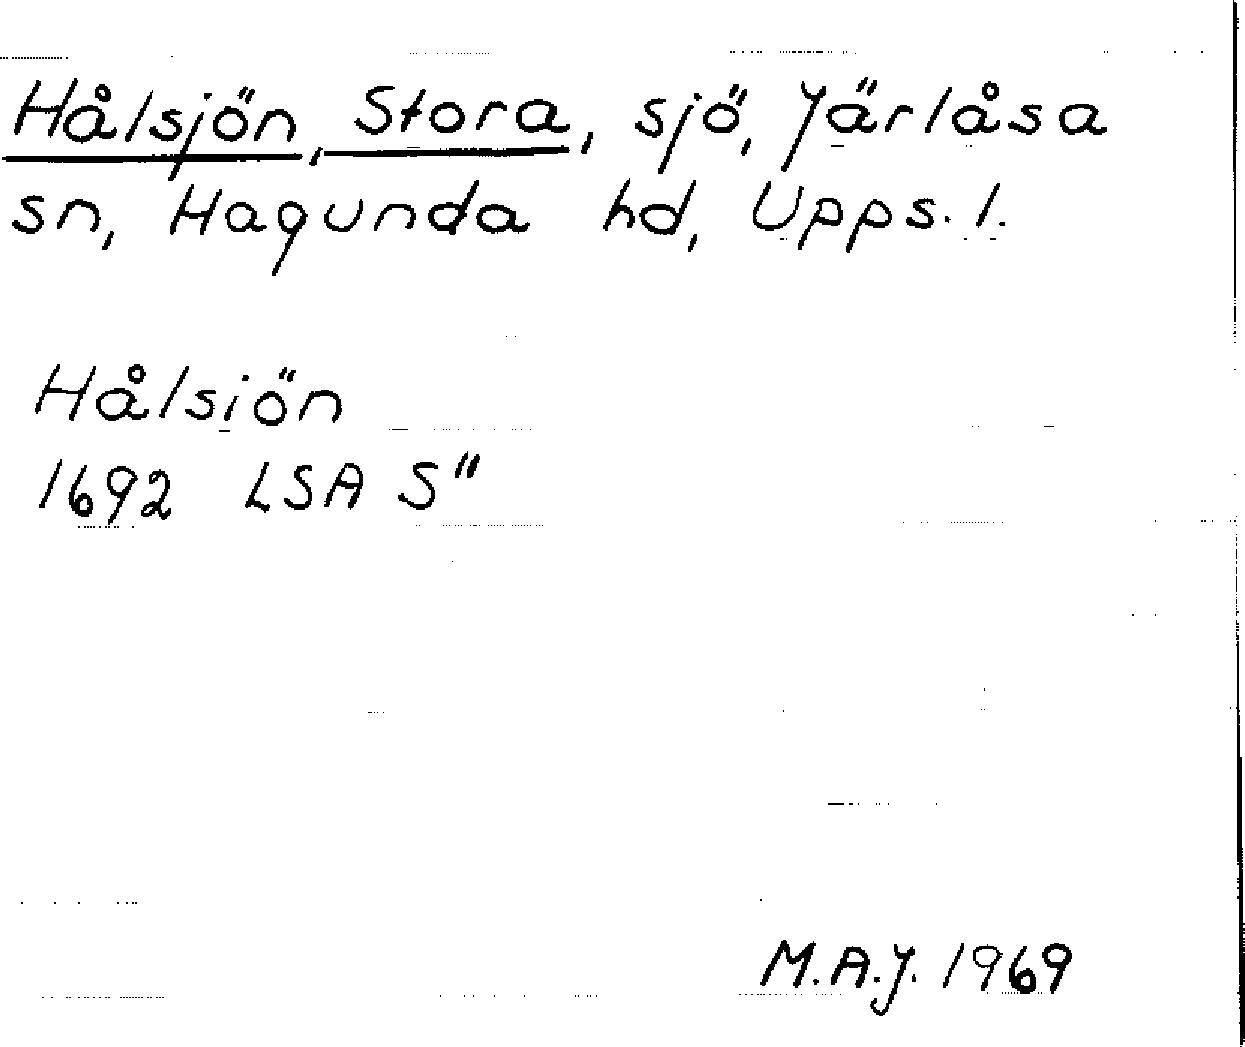 Hålsjön, Stora, sjö, Järlåsa
sn, Hagunda hd, Upps. l.
Hålsiön
1692 LSA S"
M.A.J. 1969